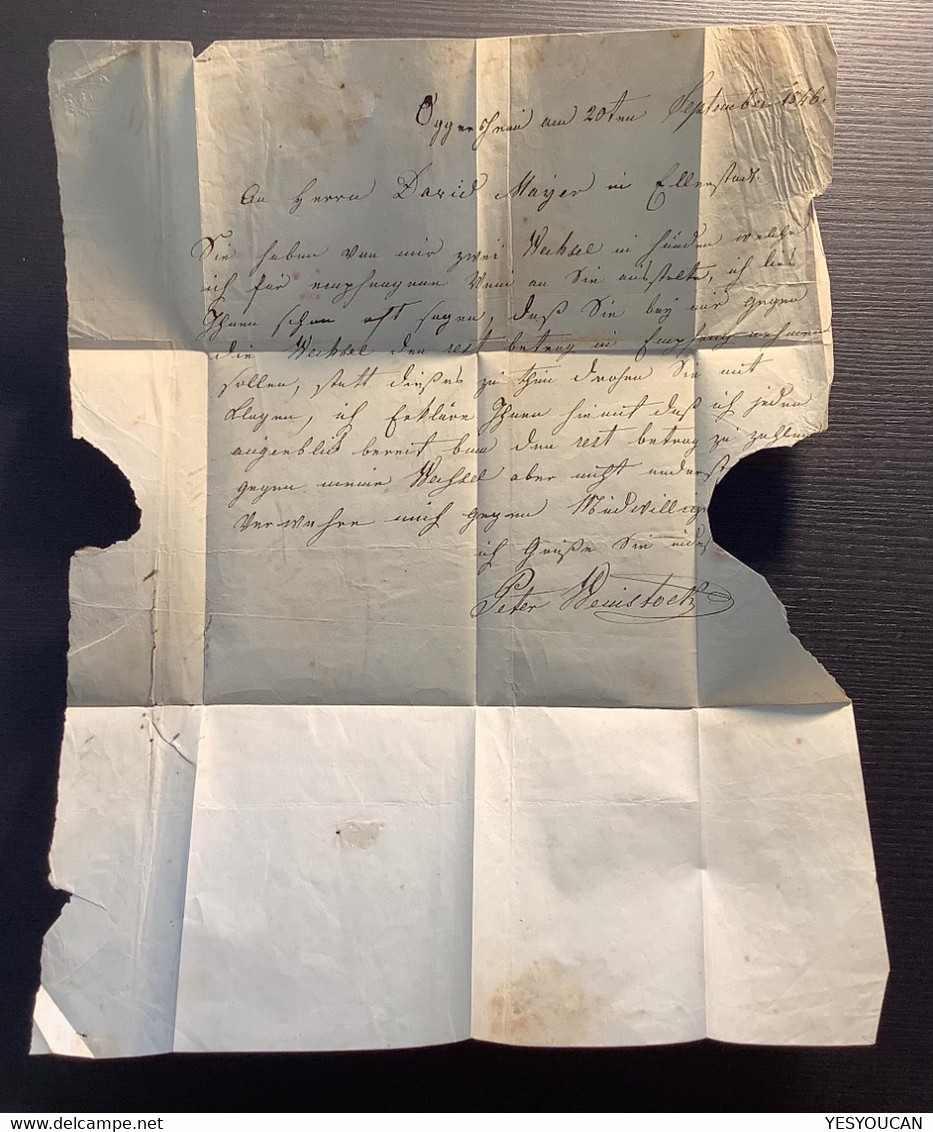 Oggersheim am 20ten September 1846.
An Herrn David Mayer in Ellerstadt.
Sie haben von mir zwei Wechsel in händen welche
ich für empfangene Wein an Sie ausstelte, ich lies
Ihnen schon oft sagen, daß Sie bey mir gegen
die Wechsel den rest betrag in Empfang nehmen
sollen, statt dießes zu thun drohen Sie mit
klagen, ich Erkläre Ihnen hiemit daß ich jeden
augenblick bereit binn den rest betrag zu zahlen
gegen meine Wechsel aber nicht anderst
Verwahre mich gegen Mudwillige
ich Grüße Sie
Peter Weinstock
YESYOUCAN